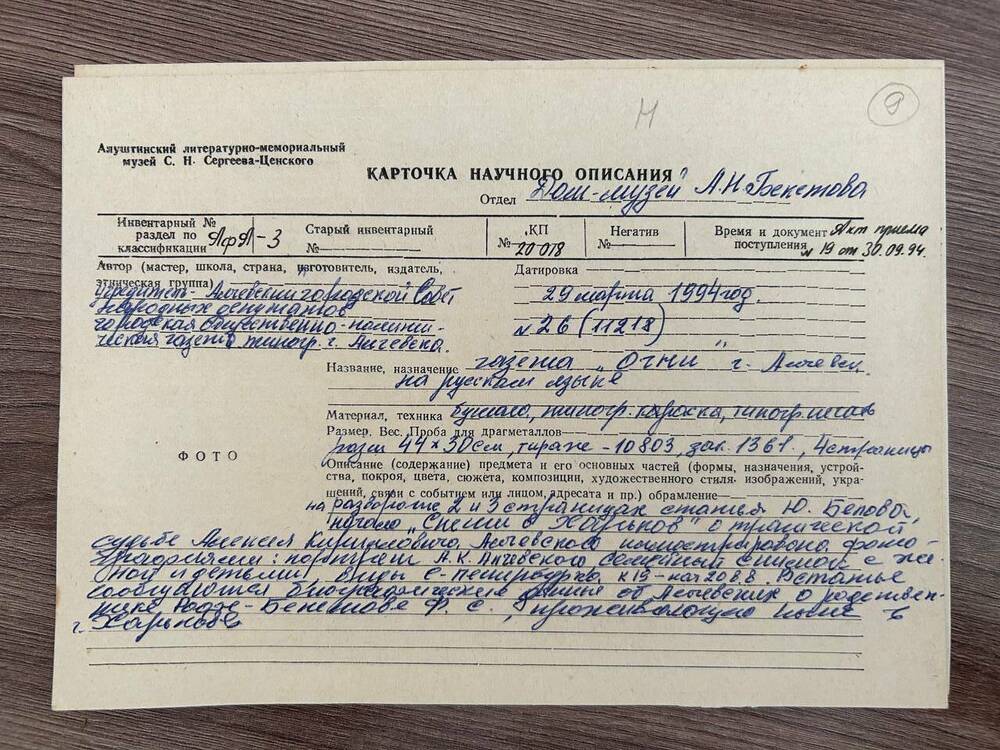 Н
9
Алуштинский литературно-мемориальный
музей С. Н. Сергеева-Ценского
КАРТОЧКА НАУЧНОГО ОПИСАНИЯ
Отдел Дом-музей А.Н. Бекетова
Инвентарный № раздел по классификации АфА-3
Старый инвентарный №
КП № 20 018
Негатив №
Время и документ поступления Акт приема № 19 от 30.09.94.
Автор (мастер, школа, страна, изготовитель, издатель,
этническая группа)
Учредитель - Алчевский городской Совет
народных депутатов
городская общественно-полити-
ческая газета типогр. г. Алчевска.
Датировка
29 марта 1994 год.
№ 26 (11218)
Название, назначение газета „Огни" г. Алчевск
на русском языке
Материал, техника бумага, типогр. краска, типогр. печать
Размер. Вес. Проба для драгметаллов
разм 44 х 30 см, тираж - 10803, зак. 1361, 4 страницы
ФОТО
Описание (содержание) предмета и его основных частей (формы, назначения, устрой-
ства, покроя, цвета, сюжета, композиции, художественного стиля. изображений, укра-
шений, связи с событием или лицом, адресата и пр.) обрамление
на развороте 2 и 3 страницах статья Ю. Белова,
начало „Спеши в Харьков" о трагической
судьбе Алексея Кирилловича Алчевского иллюстрирована фото-
графиями: портрет А.К. Алчевского семейный снимок с же-
ной и детьми, виды С-Петербурга, к 19 - нач 20 в.в. В статье
сообщаются биографические данные об Алчевских о родствен-
нике Бекетове Ф. С., проживающем ныне в
г. Харькове